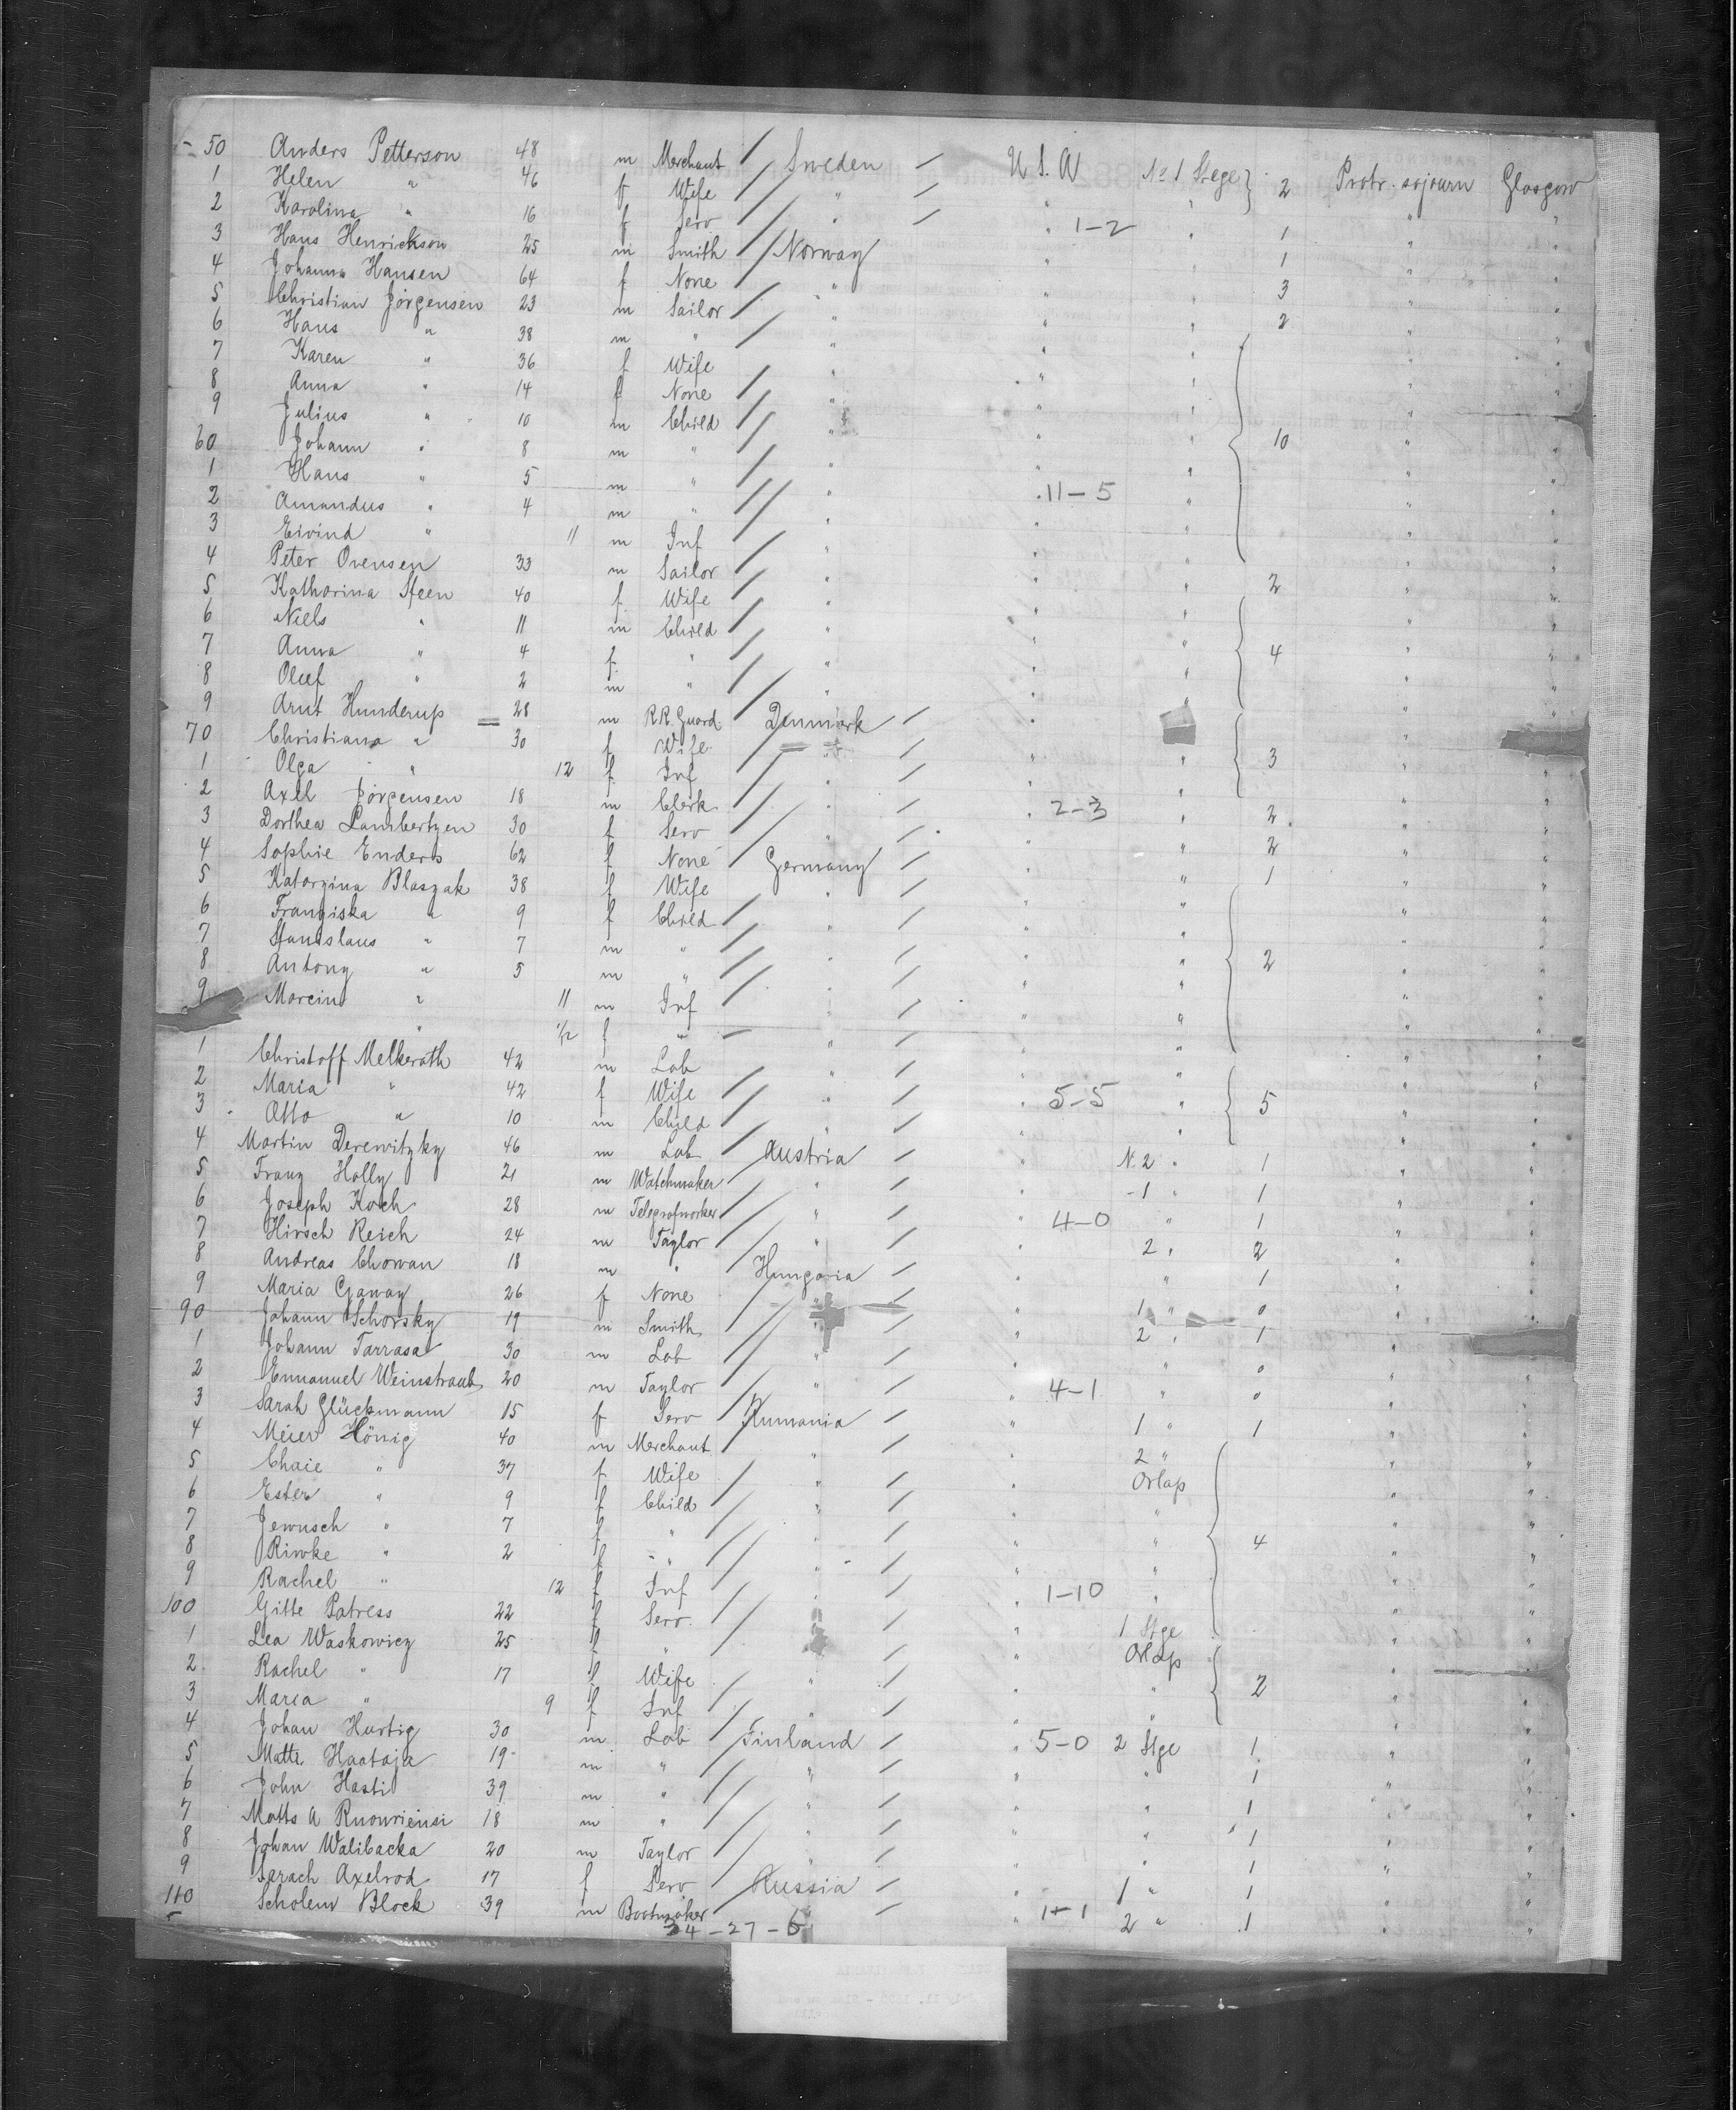 50 Anders Petterson 48 m Merchant Sweden U.S.A No 1 Stege 2 Protr. sojourn Glasgow
1 Helen " 46 f Wife " " " " "
2 Karolina " 16 f Serv " " 1-2 " 1 " "
3 Hans Henrickson 25 m Smith Norway " " 1 " "
4 Johanna Hansen 64 f None " " " 3 " "
5 Christian Jörgensen 23 m Sailor " " " 2 " "
6 Hans " 38 m " " " " " "
7 Karen " 36 f Wife " " " " "
8 Anna " 14 f None " " " " "
9 Julius " 10 m Child " " " 10 " "
60 Johann " 8 m " " " " " "
1 Hans " 5 m " " " 11-5 " " "
2 Amandus " 4 m " " " " " "
3 Eivind " 11 m Inf " " " " "
4 Peter Ovensen 33 m Sailor " " " 2 " "
5 Katharina Steen 40 f Wife " " " " "
6 Niels " 11 m Child " " " " "
7 Anna " 4 f " " " " 4 " "
8 Oluf " 2 m " " " " " "
9 Arnt Hunderup 28 m R.R. Guard Denmark " " "
70 Christiana " 30 f Wife " " " "
1 Olga " 12 f Inf " " " 3 " "
2 Axel Jörgensen 18 m Clerk " " 2-3 " 2 " "
3 Dorthea Lambertzen 30 f Serv " " " 2 " "
4 Sophie Enders 62 f None Germany " " 1 " "
5 Katarzina Blaszak 38 f Wife " " " " "
6 Franziska " 9 f Child " " " " "
7 Stanislaus " 7 m " " " " 2 " "
8 Antony " 5 m " " " " " "
9 Marcin " 11 m Inf " " " " "
" 1/12 f " " " " " "
1 Christoff Melkerath 42 m Lab " " " " "
2 Maria " 42 f Wife " " 5-5 " 5 " "
3 Otto " 10 m Child " " " " "
4 Martin Derewitzky 46 m Lab Austria " N. 2 " 1 " "
5 Franz Holly 21 m Watchmaker " " 1 " 1 " "
6 Joseph Koch 28 m Telegrafworker " " 4-0 " 1 " "
7 Hirsch Reich 24 m Taylor " " 2 " 2 " "
8 Andreas Chowan 18 m " Hungaria " " 1 " "
9 Maria Czaway 26 f None " " 1 " 0 " "
90 Johann Schorsky 19 m Smith " " 2 " 1 " "
1 Johann Tarrasa 30 m Lab " " " 0 " "
2 Emanuel Weinstraub 20 m Taylor " " 4-1 " 0 " "
3 Sarah Glückmann 15 f Serv Rumania " 1 " 1 " "
4 Meier Hönig 40 m Merchant " " 2 " " "
5 Chaie " 37 f Wife " " Orlap " "
6 Ester " 9 f Child " " " " "
7 Jewusch " 7 f " " " " 4 " "
8 Riwke " 2 f " " " " " "
9 Rachel " 12 f Inf " " 1-10 " " "
100 Gitte Patress 22 f Serv. " " 1 Stge " "
1 Lea Waskowicz 25 f " " " Orlap " "
2 Rachel " 17 f Wife " " " 2 " "
3 Maria " 9 f Inf " " " " "
4 Johan Hurtig 30 m Lab Finland " 5-0 2 Stge 1 " "
5 Matti Haataja 19 m " " " " 1 " "
6 John Hasti 39 m " " " " 1 " "
7 Matts A Ruonriensi 18 m " " " " 1 " "
8 Johan Walibacka 20 m Taylor " " " 1 " "
9 Sarach Axelrod 17 f Serv Russia " 1 " 1 " "
110 Scholem Block 39 m Bootmaker " 1+1 2 " 1 " "
34-27-6